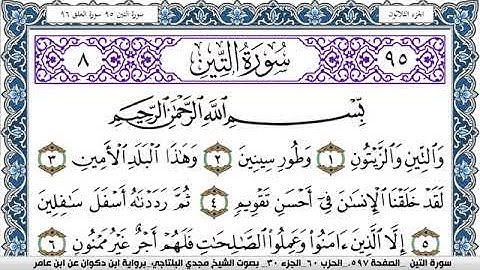 الجزء الثلاثون
سورة التين ٩٥ سورة العلق ٩٦
٩٥ سُورَةُ التِّينِ ٨
بِسْمِ اللَّهِ الرَّحْمَٰنِ الرَّحِيمِ
وَالتِّينِ وَالزَّيْتُونِ ١ وَطُورِ سِينِينَ ٢ وَهَٰذَا الْبَلَدِ الْأَمِينِ ٣
لَقَدْ خَلَقْنَا الْإِنسَانَ فِي أَحْسَنِ تَقْوِيمٍ ٤ ثُمَّ رَدَدْنَاهُ أَسْفَلَ سَافِلِينَ
٥ إِلَّا الَّذِينَ ءَامَنُوا وَعَمِلُوا الصَّالِحَاتِ فَلَهُمْ أَجْرٌ غَيْرُ مَمْنُونٍ ٦
سورة التين _ الصفحة ٥٩٧_ الحزب ٦٠_ الجزء ٣٠_ بصوت الشيخ مجدي البلتاجي_ برواية ابن ذكوان عن ابن عامر